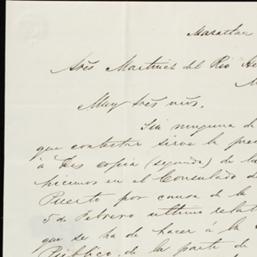 Mazatlan
Sres Martinez del Rio He
Muy Sres nrs.
Sin ninguna de
que contestar sirve la pres
á Vds copia (segunda) de la
hicimos en el Consulado d
Puerto por causa de la
5 de Febrero ultimo relat
que se ha de hacer a la
Público, de la parte d